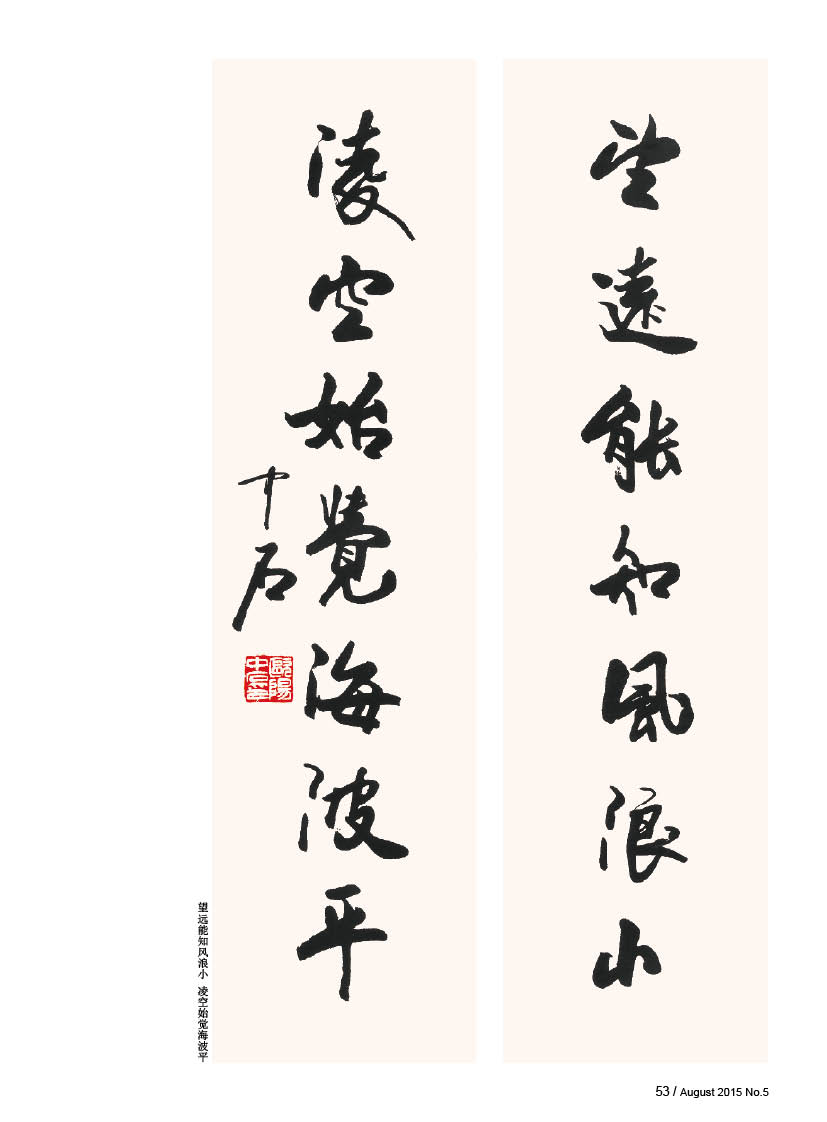 望遠能知風浪小
凌空始覺海波平
中石
歐陽中石
望远能知风浪小 凌空始觉海波平
53 / August 2015 No.5